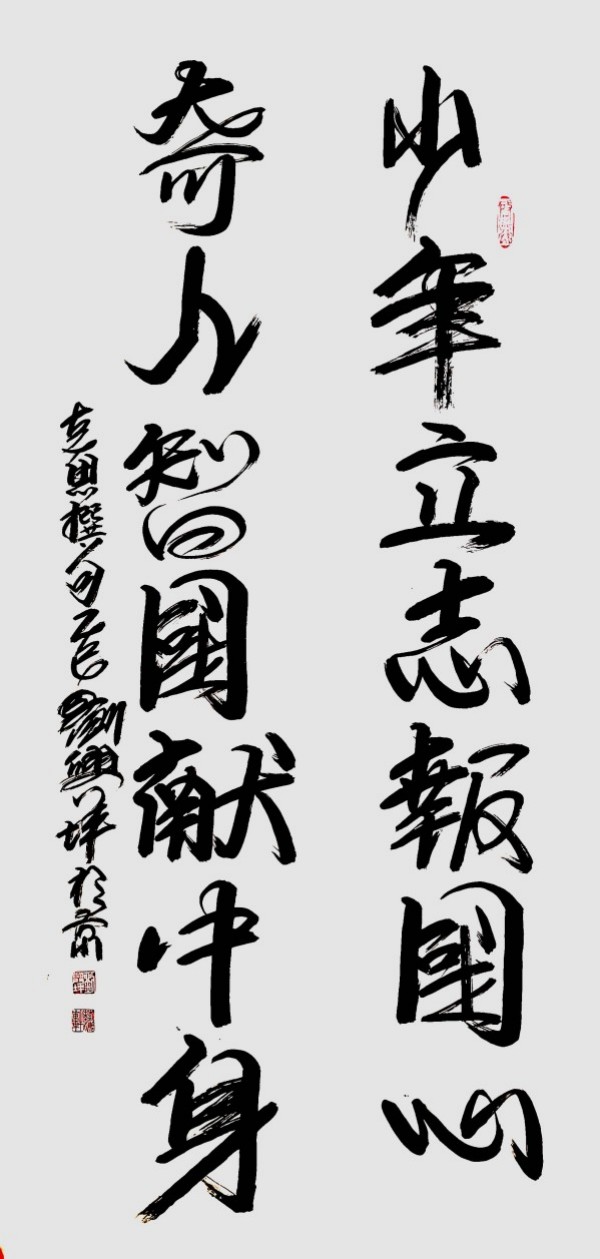 少年立志報國心
奇人智國献中身
思撰句乙巳劉興坪於京